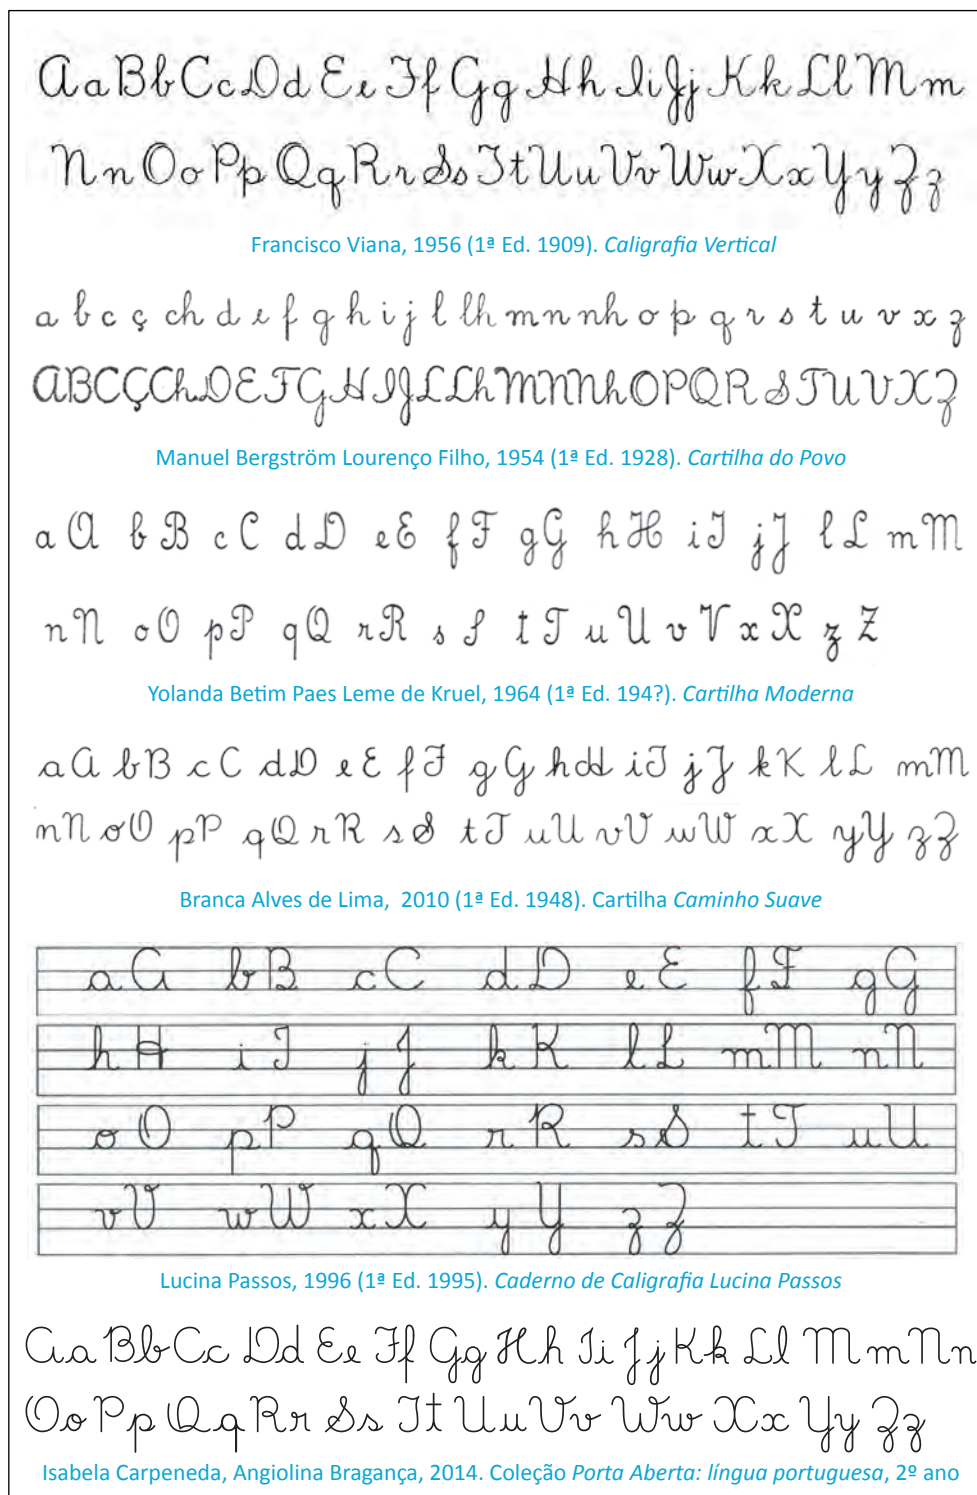 AaBbCcDdEeFfGgHhIiJjKkLlMm
NnOoPpQqRrSsTtUuVvWwXxYyZz
Francisco Viana, 1956 (1ª Ed. 1909). Caligrafia Vertical
a b c ç ch d e f g h i j l lh m n nh o p q r s t u v x z
ABCÇChDEFGHIJLLhMNNhOPQRSTUVXZ
Manuel Bergström Lourenço Filho, 1954 (1ª Ed. 1928). Cartilha do Povo
aA bB cC dD eE fF gG hH iI jJ lL mM
nN oO pP qQ rR sS tT uU vV xX zZ
Yolanda Betim Paes Leme de Kruel, 1964 (1ª Ed. 194?). Cartilha Moderna
aA bB cC dD eE fF gG hH iI jJ kK lL mM
nN oO pP qQ rR sS tT uU vV wW xX yY zZ
Branca Alves de Lima, 2010 (1ª Ed. 1948). Cartilha Caminho Suave
aA bB cC dD eE fF gG
hH iI jJ kK lL mM nN
oO pP qQ rR sS tT uU
vV wW xX yY zZ
Lucina Passos, 1996 (1ª Ed. 1995). Caderno de Caligrafia Lucina Passos
Aa Bb Cc Dd Ee Ff Gg Hh Ii Jj Kk Ll Mm Nn
Oo Pp Qq Rr Ss Tt Uu Vv Ww Xx Yy Zz
Isabela Carpeneda, Angiolina Bragança, 2014. Coleção Porta Aberta: língua portuguesa, 2º ano